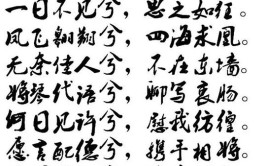 一日不见兮，思之如狂。
凤飞翱翔兮，四海求凰。
无奈佳人兮，不在东墙。
将琴代语兮，聊写衷肠。
何日见许兮，慰我彷徨。
愿言配德兮，携手相将。